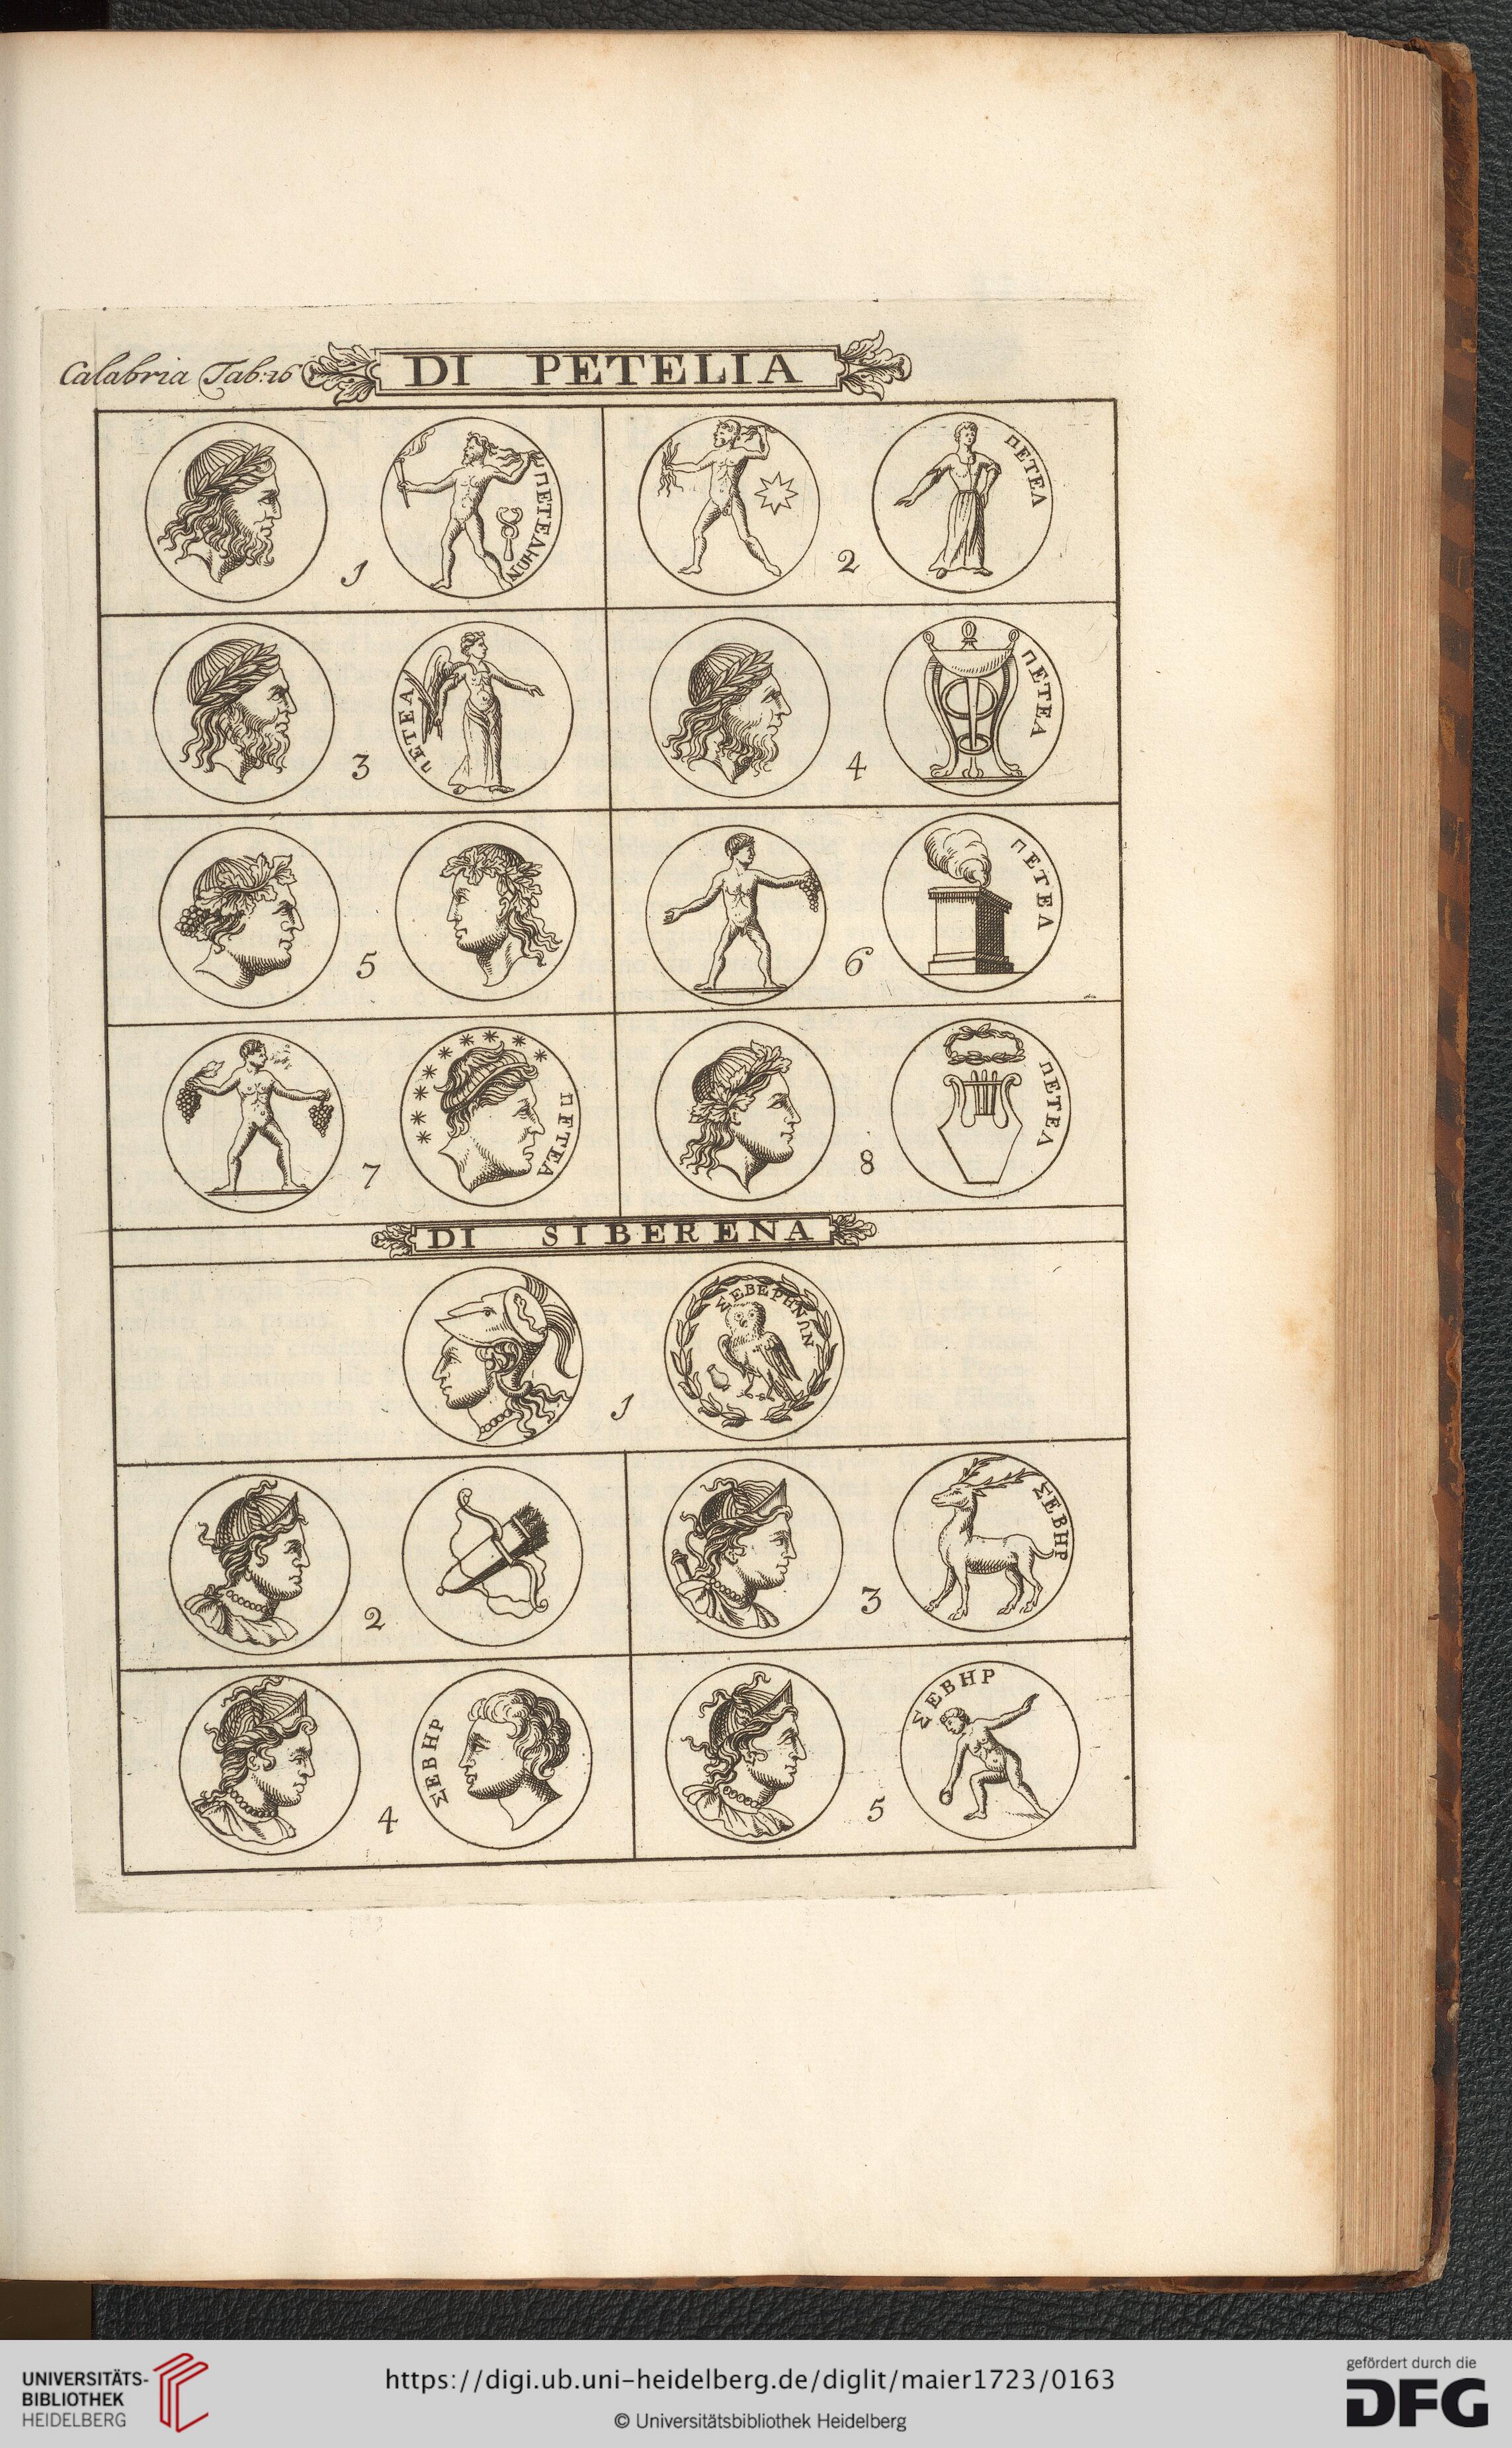 Calabria Tab: 26
DI PETELIA
ΠΕΤΕΛΗΩΝ
1
2
ΠΕΤΕΛ
ΠΕΤΕΛ
3
4
ΠΕΤΕΛ
5
6
ΠΕΤΕΛ
7
ΠΕΤΕΛ
8
ΠΕΤΕΛ
DI SIBERENA
1
ΣΕΒΕΡΗΝΩΝ
2
3
ΣΕΒΗΡ
4
ΣΕΒΗΡ
5
ΣΕΒΗΡ
UNIVERSITÄTS-
BIBLIOTHEK
HEIDELBERG
https://digi.ub.uni-heidelberg.de/diglit/maier1723/0163
© Universitätsbibliothek Heidelberg
gefördert durch die
DFG